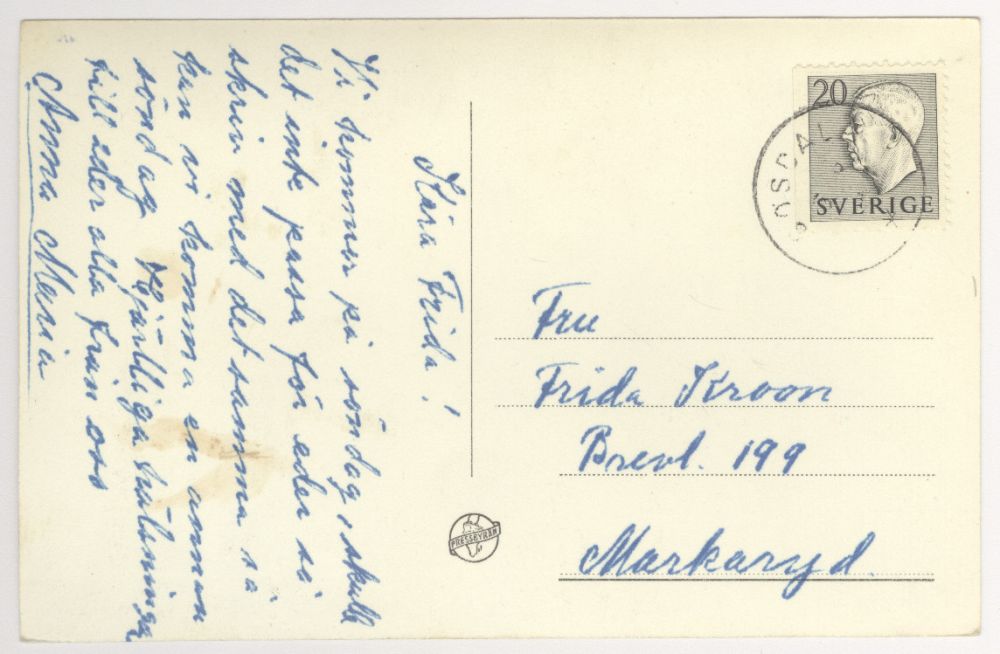 Kära Frida!
Vi kommer på söndag, skulle
det inte passa för eder så
skriv med det samma så
kan vi komma en annan
söndag Hjärtliga hälsningar
till eder alla från oss
Anna Maria
20
SVERIGE
Fru
Frida Kroon
Brevl. 199
Markaryd.
PRESSBYRÅN